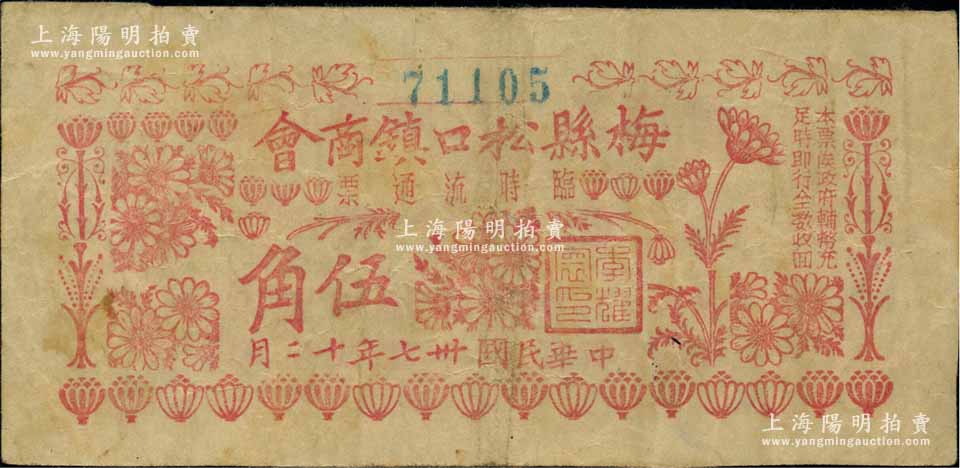 上海陽明拍賣
www.yangmingauction.com
71105
梅縣松口鎮商會
臨時流通票
伍角
中華民國卅七年十二月
本票俟政府輔幣充
足時即行全數收回
李耀
上海陽明拍賣
www.yangmingauction.com
上海陽明拍賣
www.yangmingauction.com